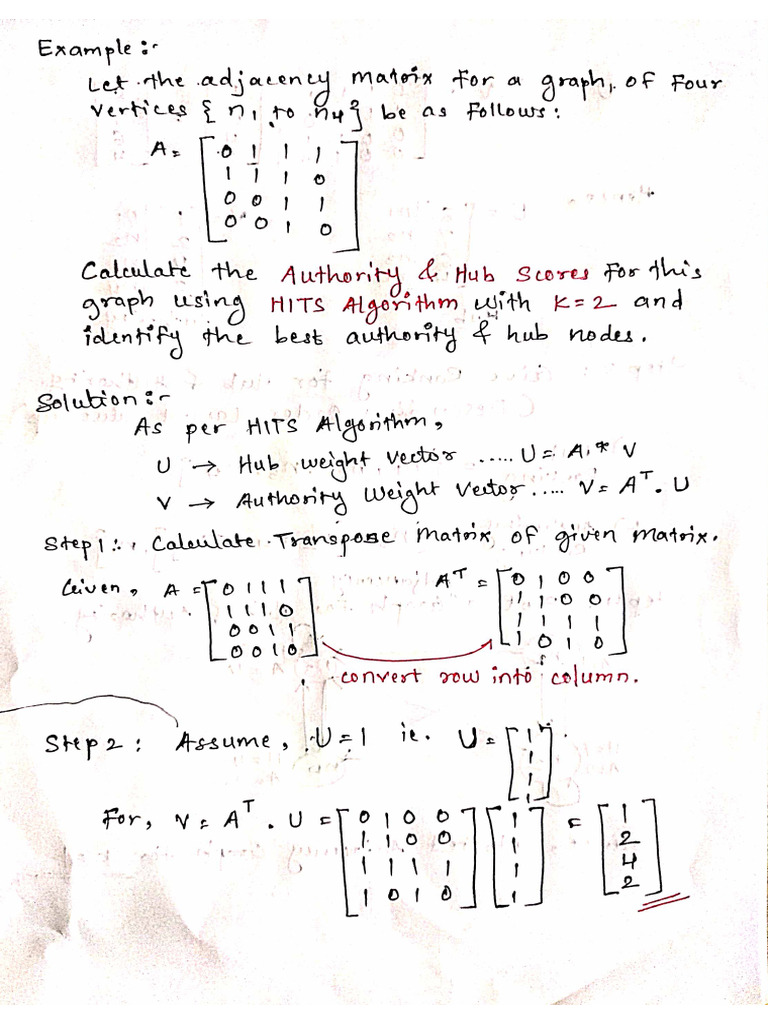 Example :-
Let the adjacency matrix for a graph, of four
vertices { n1 to n4} be as follows:
A = [ 0 1 1 1
1 1 1 0
0 0 1 1
0 0 1 0 ]
Calculate the Authority & Hub Scores for this
graph using HITS Algorithm with K=2 and
identify the best authority & hub nodes.
Solution :-
As per HITS Algorithm,
U → Hub weight vector ..... U = A * V
V → Authority Weight Vector .... V = Aᵀ . U
Step 1 : Calculate Transpose Matrix of given matrix.
Given, A = [ 0 1 1 1 Aᵀ = [ 0 1 0 0
1 1 1 0 1 1 0 0
0 0 1 1 1 1 1 1
0 0 1 0 ] 1 0 1 0 ]
convert row into column.
Step 2 : Assume, U = 1 ie. U = [ 1
1
1
1 ]
For, V = Aᵀ . U = [ 0 1 0 0 ] [ 1 ] = [ 1
1 1 0 0 1 2
1 1 1 1 1 4
1 0 1 0 1 2 ]